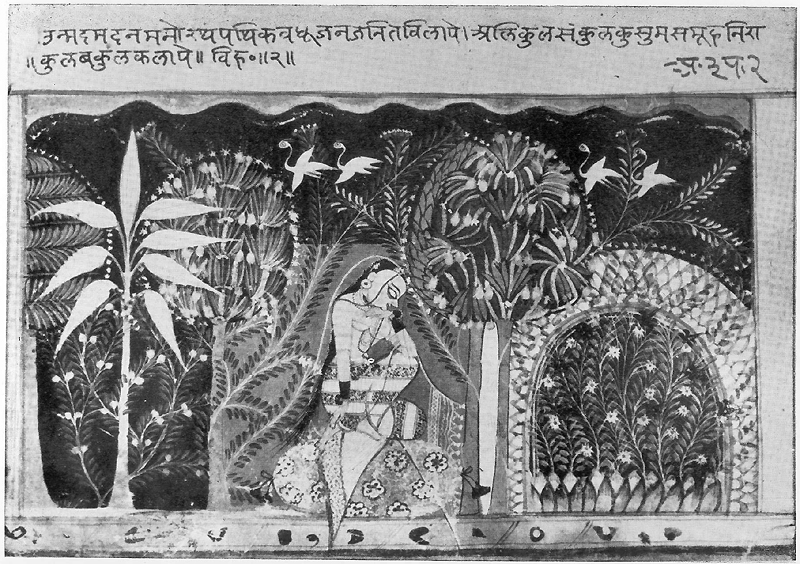 उन्मदमदनमनोरथपथिकवधूजनजनितविलापे। अलिकुलसंकुलकुसुमसमूहनिरा
॥कुलबकुलकलापे॥ विह॰॥२॥